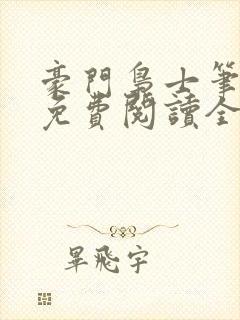 豪門梟士筆
免費閱讀全
畢飛宇